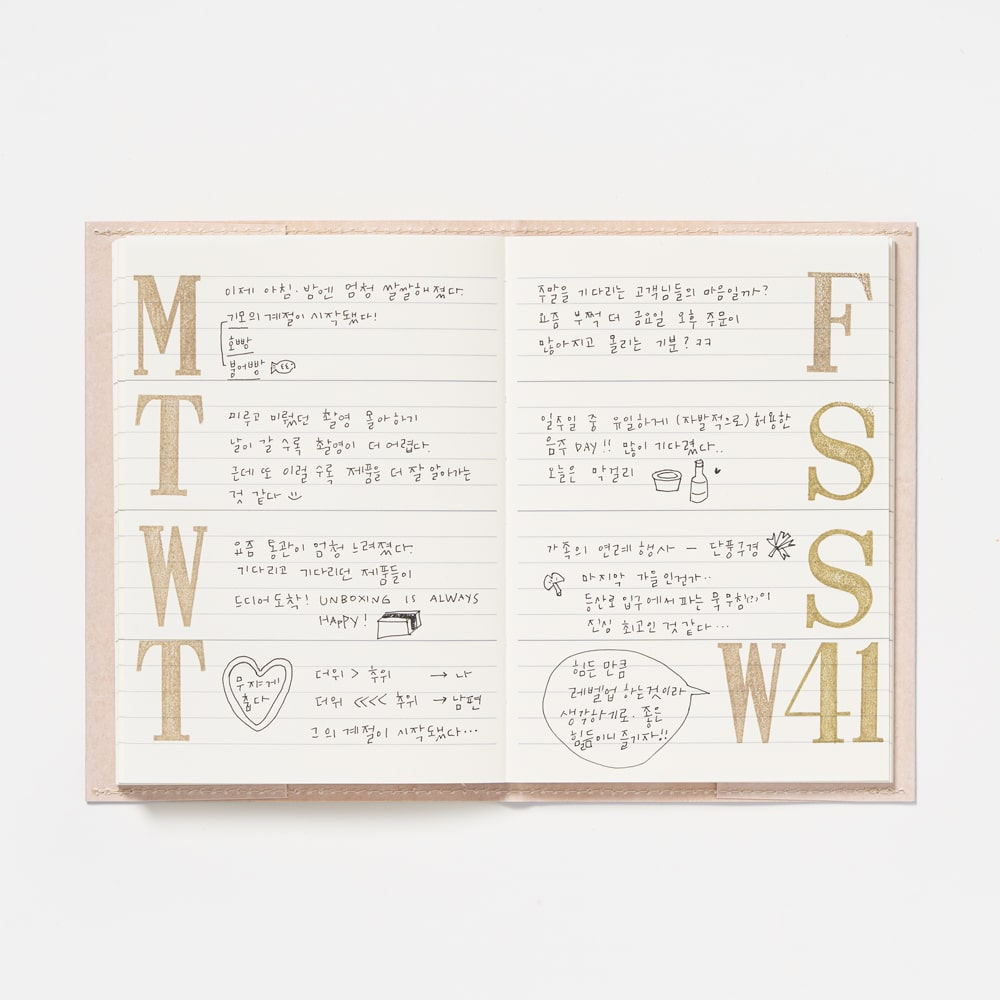 M
이제 아침·밤엔 엄청 쌀쌀해졌다.
기모의 계절이 시작됐다!
호빵
붕어빵
T
미루고 미뤘던 촬영 몰아하기
날이 갈 수록 촬영이 더 어렵다.
근데 또 이럴 수록 제품을 더 잘 알아가는
것 같다
W
요즘 통관이 엄청 느려졌다.
기다리고 기다리던 제품들이
드디어 도착! UNBOXING IS ALWAYS
HAPPY!
T
무쟈게
춥다
더위 > 추위 → 나
더위 <<<< 추위 → 남편
그의 계절이 시작됐다...
F
주말을 기다리는 고객님들의 마음일까?
요즘 부쩍 더 금요일 오후 주문이
많아지고 몰리는 기분? ㅋㅋ
S
일주일 중 유일하게 (자발적으로) 허용한
음주 DAY!! 많이 기다렸다..
오늘은 막걸리
S
가족의 연례 행사 – 단풍구경
마지막 가을인건가..
등산로 입구에서 파는 묵무침(?)이
진심 최고인 것 같다...
W41
힘든 만큼
레벨업 하는것이라
생각하기로. 좋은
힘듦이니 즐기자!!